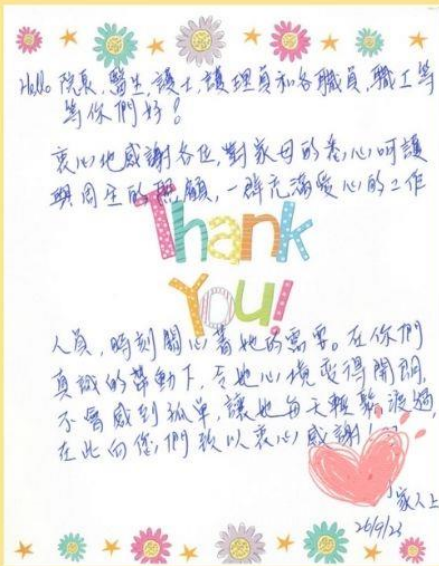 Hello 院長,醫生,護士,護理員和各職員,職工等
等你們好!
衷心地感謝各位,對家母的悉心呵護
與周全的照顧,一群充滿愛心的工作
Thank
You!
人員,時刻關心著她的需要。在你們
真誠的帶動下,令她心境變得開朗,
不會感到孤單,讓她每天輕鬆渡過
在此向您們致以衷心感謝!
家人上
26/9/23